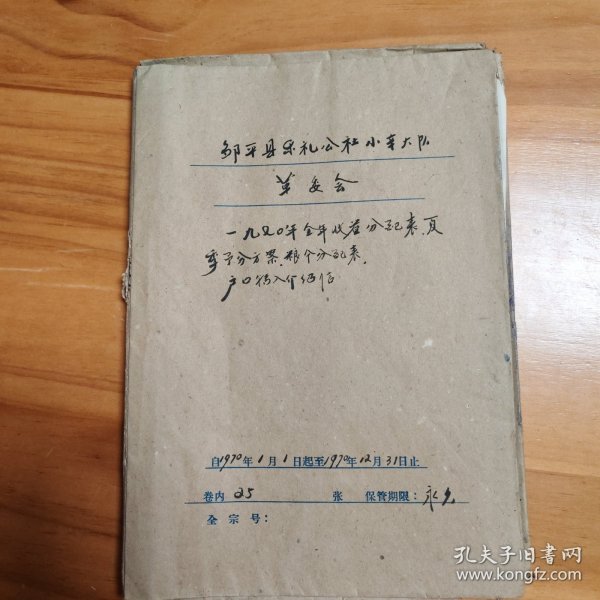 邹平县乐礼公社小辛大队
革委会
一九七〇年全年收益分配表、夏
季予分方案、粮个分配表、
户口转入介绍信
自1970年1月1日起至1970年12月31日止
卷内25张 保管期限：永久
全宗号：
孔夫子旧书网
www.kongfz.com